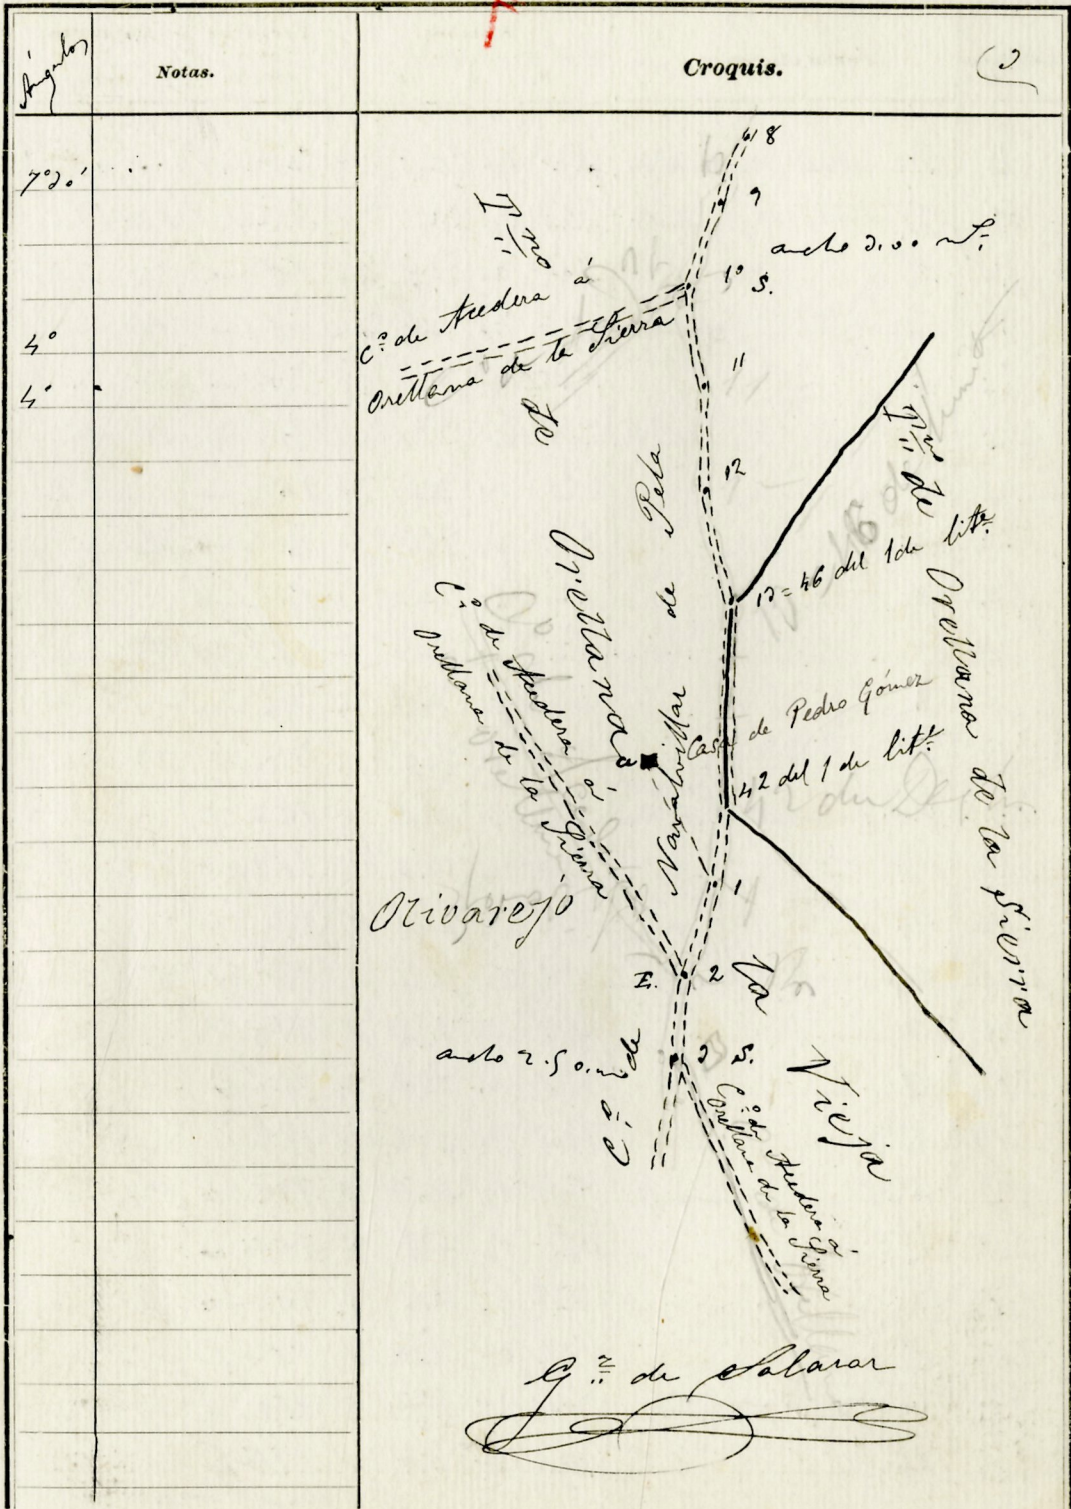 Ángulos
Notas.
Croquis.
7º30'
4º
4º
8
9
ancho 3.00 mts.
10 S.
Tno
Cº de Acedera á
Orellana de la Sierra
de
11
12
Tno de Orellana de la Sierra
13=46 del 1 de lite.
Orellana
Navalvillar de Pela
Cº de Acedera á
Orellana de la Sierra
a
Casa de Pedro Gómez
42 del 1 de lite.
1
Olivarejo
E.
2
la
ancho 2.50 m
de
3 S.
Vieja
á
Cº de Acedera á
Orellana de la Sierra
Gz de Salazar